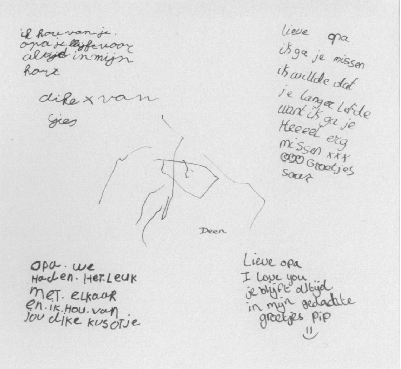 ik hou van je.
opa je blijft voor
altijd in mijn
hart
dike x van
Sjies
lieve opa
ik ga je missen
ik wilde dat
je langer leefde
want ik ga je
Heeeel erg
missen xxx
ooo Groetjes
Saar
Deen
opa. we
Haden. Het. Leuk
met. elkaar
en. ik. Hou. van
jou dike kusotje
Lieve opa
I love you
je blijft altijd
in mijn gedachte
groetjes pip